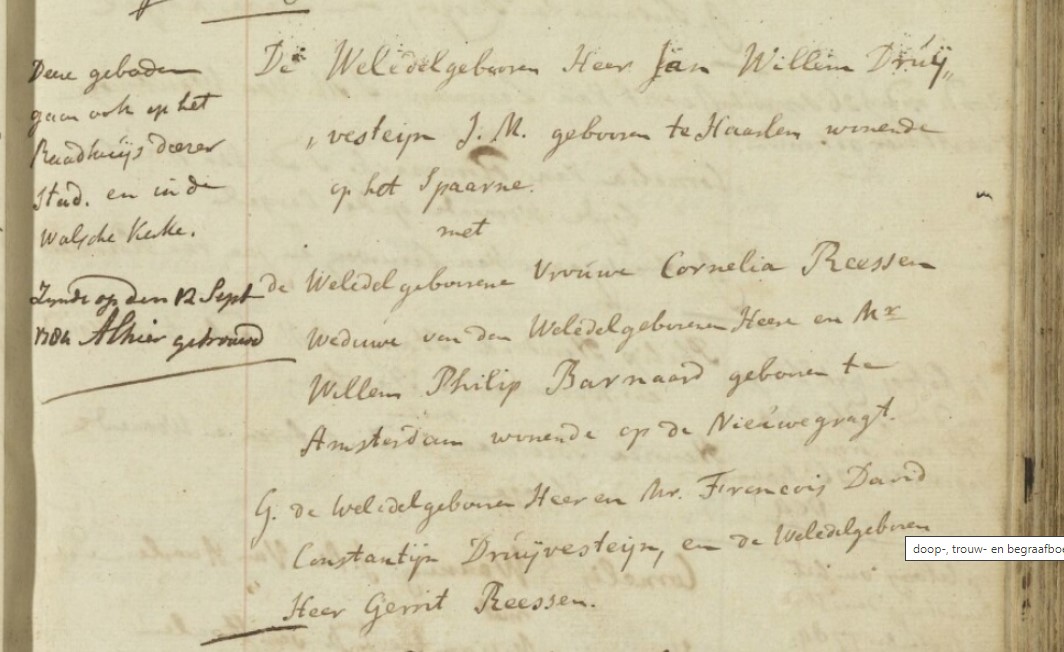 Deze geboden
gaan ook op het
Raadhuijs deezer
Stad. en in de
Walsche Kerke.
Zynde op den 12 Sept
1784 Alhier getrouwd
De Weledelgebooren Heer Jan Willem Druij„
„vesteijn J. M. gebooren te Haarlem wonende
op het Spaarne.
met
de Weledelgeboorene Vrouwe Cornelia Reessen
Weduwe van den Weledelgeboorenen Heere en Mr
Willem Philip Barnaard gebooren te
Amsterdam wonende op de Nieuwegragt.
G. de Weledelgebooren Heeren Mr. Francois David
Constantijn Druijvesteijn, en de Weledelgebooren
Heer Gerrit Reessen.
doop-, trouw- en begraafbo